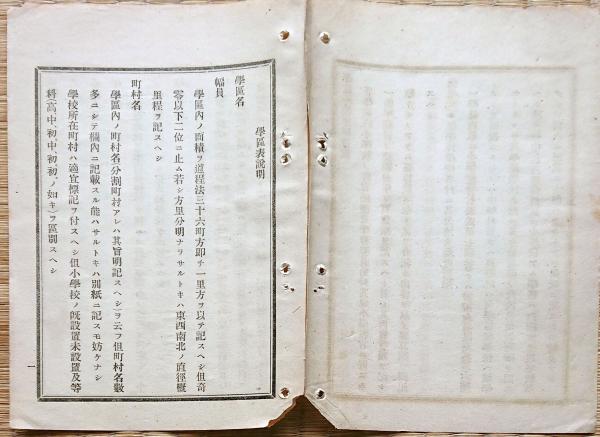 學區表說明
學區名
幅員
學區內ノ面積ヲ道程法三十六町方即チ一里方ヲ以テ記スヘシ但奇
零以下二位ニ止ム若シ方里分明ナリサルトキハ東西南北ノ直徑概
里程ヲ記スヘシ
町村名
學區內ノ町村名分割町村アレハ其旨明記スヘシヲ云フ但町村名數
多ニシテ欄內ニ記載スル能ハサルトキハ別紙ニ記スモ妨ケナシ
學校所在町村ハ適宜標記ヲ付スヘシ但小學校ノ旣設置未設置及等
科(高中、初中、初初、ノ如キ)ヲ區別スヘシ
一